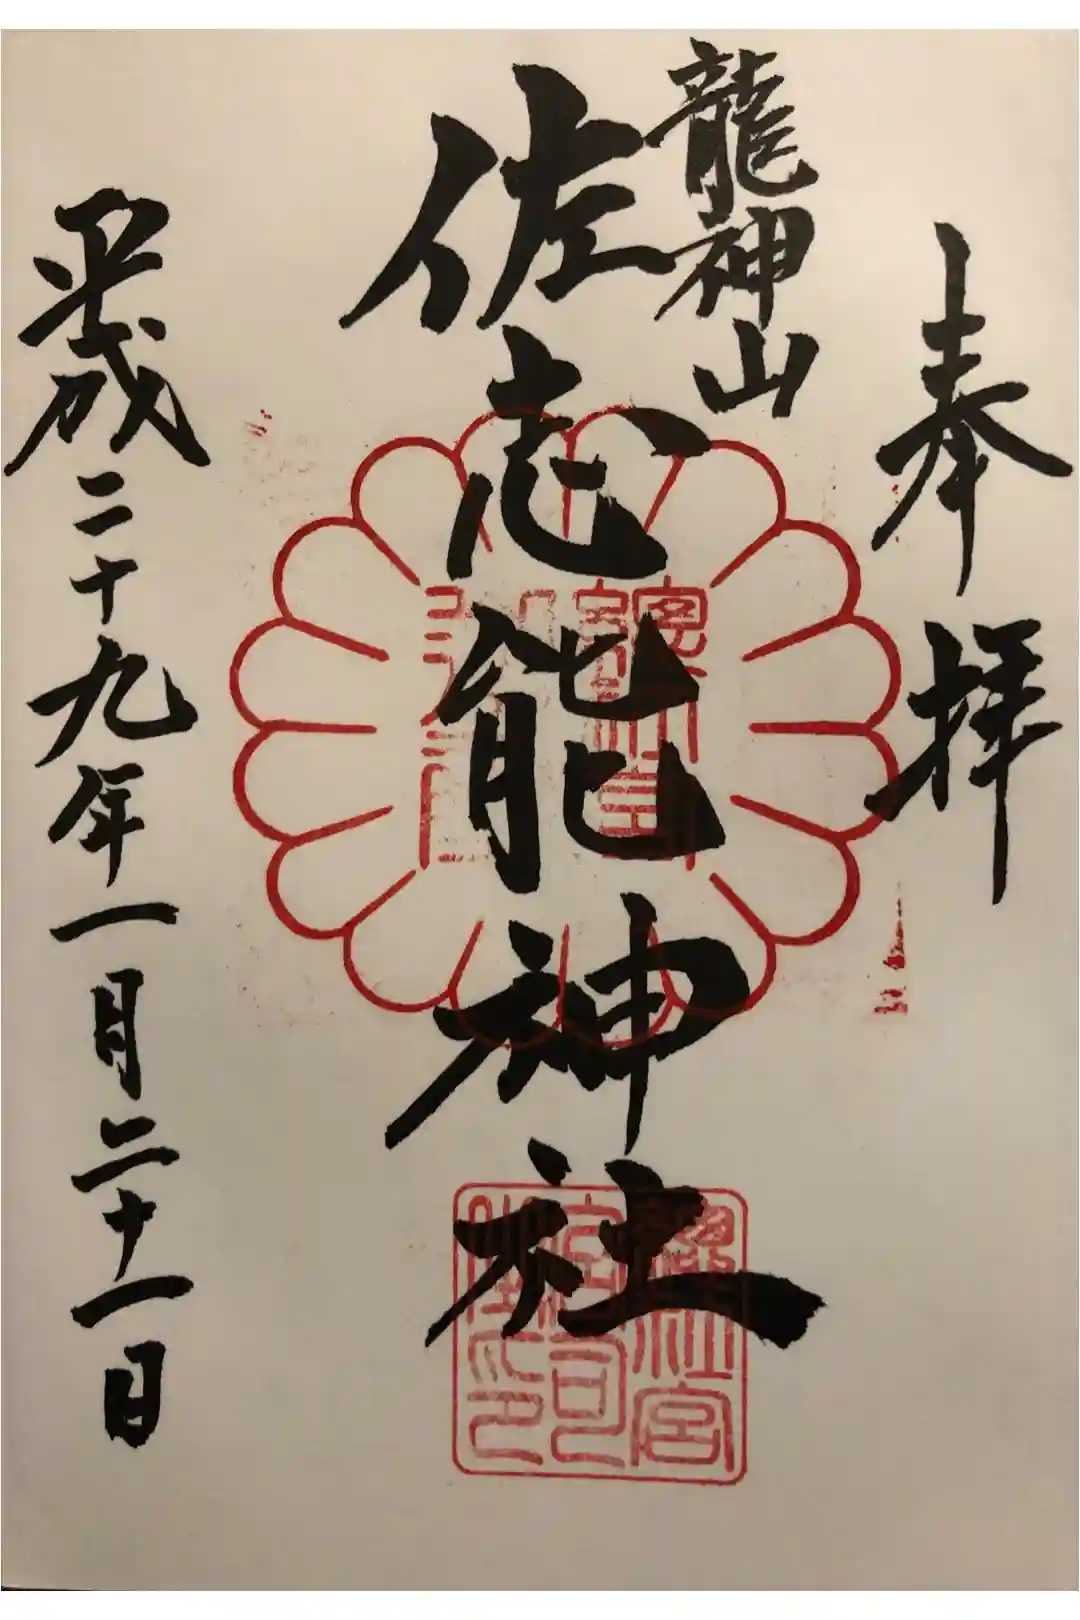 奉拝
龍神山
佐志能神社
平成二十九年一月二十一日